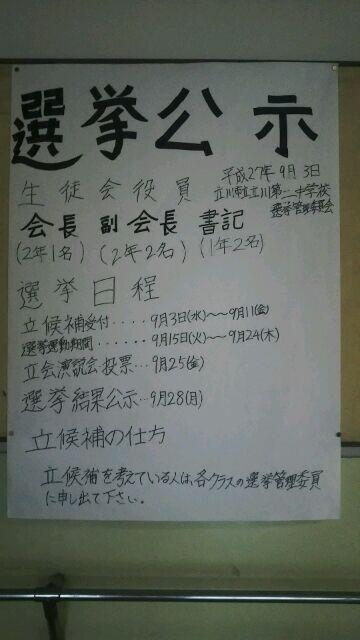 選挙公示
平成27年9月3日
立川市立立川第二中学校
選挙管理委員会
生徒会役員
会長 副会長 書記
(2年1名) (2年2名) (1年2名)
選挙日程
立候補受付・・・・・9月3日(水)〜〜9月11(金)
選挙運動期間・・・・・・・9月15日(火)〜〜9月24(木)
立会演説会投票・・・9月25(金)
選挙結果公示・・・9月28(月)
立候補の仕方
立候補を考えている人は、各クラスの選挙管理委員
に申し出て下さい。